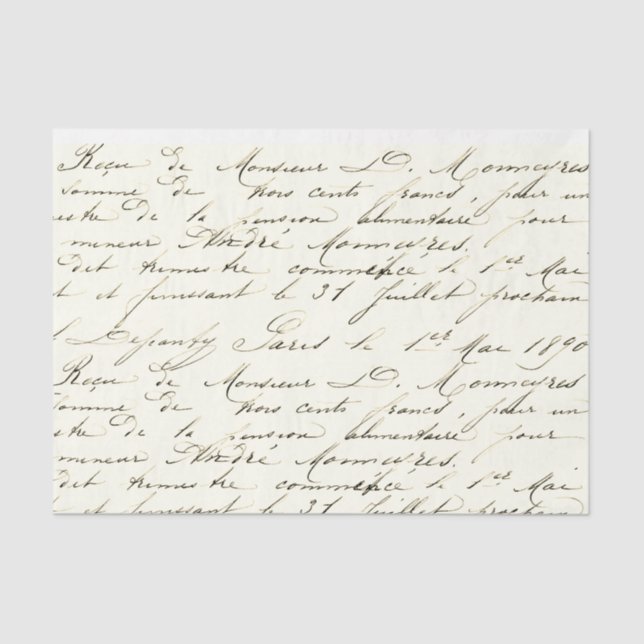 Reçu de Monsieur D. Monneyres
somme de trois cents francs, pour un
stre de la pension alimentaire pour
mineur André Monneyres.
dit trimestre commencé le 1er Mai
t et finissant le 31 Juillet prochain
Paris le 1er Mai 1890
Reçu de Monsieur D. Monneyres
somme de trois cents francs, pour un
stre de la pension alimentaire pour
mineur André Monneyres.
dit trimestre commencé le 1er Mai
t et finissant le 31 Juillet prochain